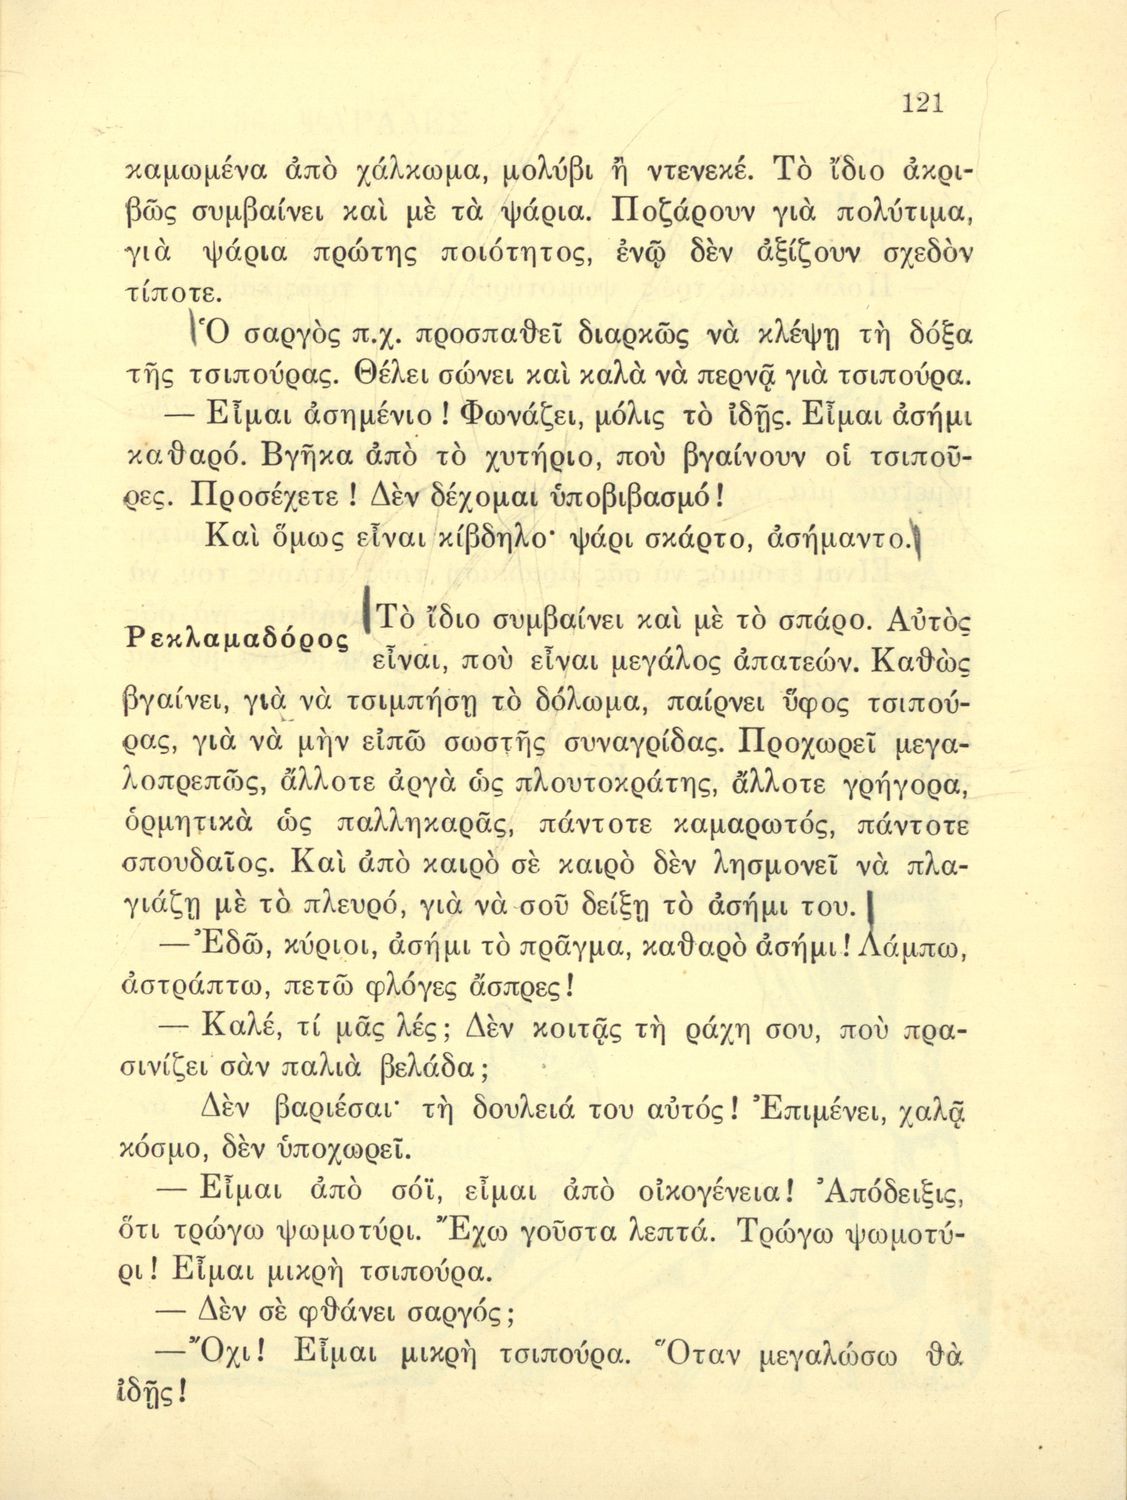 121
καμωμένα ἀπὸ χάλκωμα, μολύβι ἢ ντενεκέ. Τὸ ἴδιο ἀκρι-
βῶς συμβαίνει καὶ μὲ τὰ ψάρια. Ποζάρουν γιὰ πολύτιμα,
γιὰ ψάρια πρώτης ποιότητος, ἐνῷ δὲν ἀξίζουν σχεδὸν
τίποτε.
Ὁ σαργὸς π.χ. προσπαθεῖ διαρκῶς νὰ κλέψῃ τὴ δόξα
τῆς τσιπούρας. Θέλει σώνει καὶ καλὰ νὰ περνᾷ γιὰ τσιπούρα.
— Εἶμαι ἀσημένιο! Φωνάζει, μόλις τὸ ἰδῇς. Εἶμαι ἀσήμι
καθαρό. Βγῆκα ἀπὸ τὸ χυτήριο, ποὺ βγαίνουν οἱ τσιποῦ-
ρες. Προσέχετε! Δὲν δέχομαι ὑποβιβασμό!
Καὶ ὅμως εἶναι κίβδηλο· ψάρι σκάρτο, ἀσήμαντο.
Ρεκλαμαδόρος
Τὸ ἴδιο συμβαίνει καὶ μὲ τὸ σπάρο. Αὐτὸς
εἶναι, ποὺ εἶναι μεγάλος ἀπατεών. Καθὼς
βγαίνει, γιὰ νὰ τσιμπήσῃ τὸ δόλωμα, παίρνει ὕφος τσιπού-
ρας, γιὰ νὰ μὴν εἰπῶ σωστῆς συναγρίδας. Προχωρεῖ μεγα-
λοπρεπῶς, ἄλλοτε ἀργὰ ὡς πλουτοκράτης, ἄλλοτε γρήγορα,
ὁρμητικὰ ὡς παλληκαρᾶς, πάντοτε καμαρωτός, πάντοτε
σπουδαῖος. Καὶ ἀπὸ καιρὸ σὲ καιρὸ δὲν λησμονεῖ νὰ πλα-
γιάζῃ μὲ τὸ πλευρό, γιὰ νὰ σοῦ δείξῃ τὸ ἀσήμι του.
— Ἐδῶ, κύριοι, ἀσήμι τὸ πρᾶγμα, καθαρὸ ἀσήμι! Λάμπω,
ἀστράπτω, πετῶ φλόγες ἄσπρες!
— Καλέ, τί μᾶς λές; Δὲν κοιτᾷς τὴ ράχη σου, ποὺ πρα-
σινίζει σὰν παλιὰ βελάδα;
Δὲν βαριέσαι· τὴ δουλειά του αὐτός! Ἐπιμένει, χαλᾷ
κόσμο, δὲν ὑποχωρεῖ.
— Εἶμαι ἀπὸ σόϊ, εἶμαι ἀπὸ οἰκογένεια! Ἀπόδειξις,
ὅτι τρώγω ψωμοτύρι. Ἔχω γοῦστα λεπτά. Τρώγω ψωμοτύ-
ρι! Εἶμαι μικρὴ τσιπούρα.
— Δὲν σὲ φθάνει σαργός;
— Ὄχι! Εἶμαι μικρὴ τσιπούρα. Ὅταν μεγαλώσω θὰ
ἰδῇς!